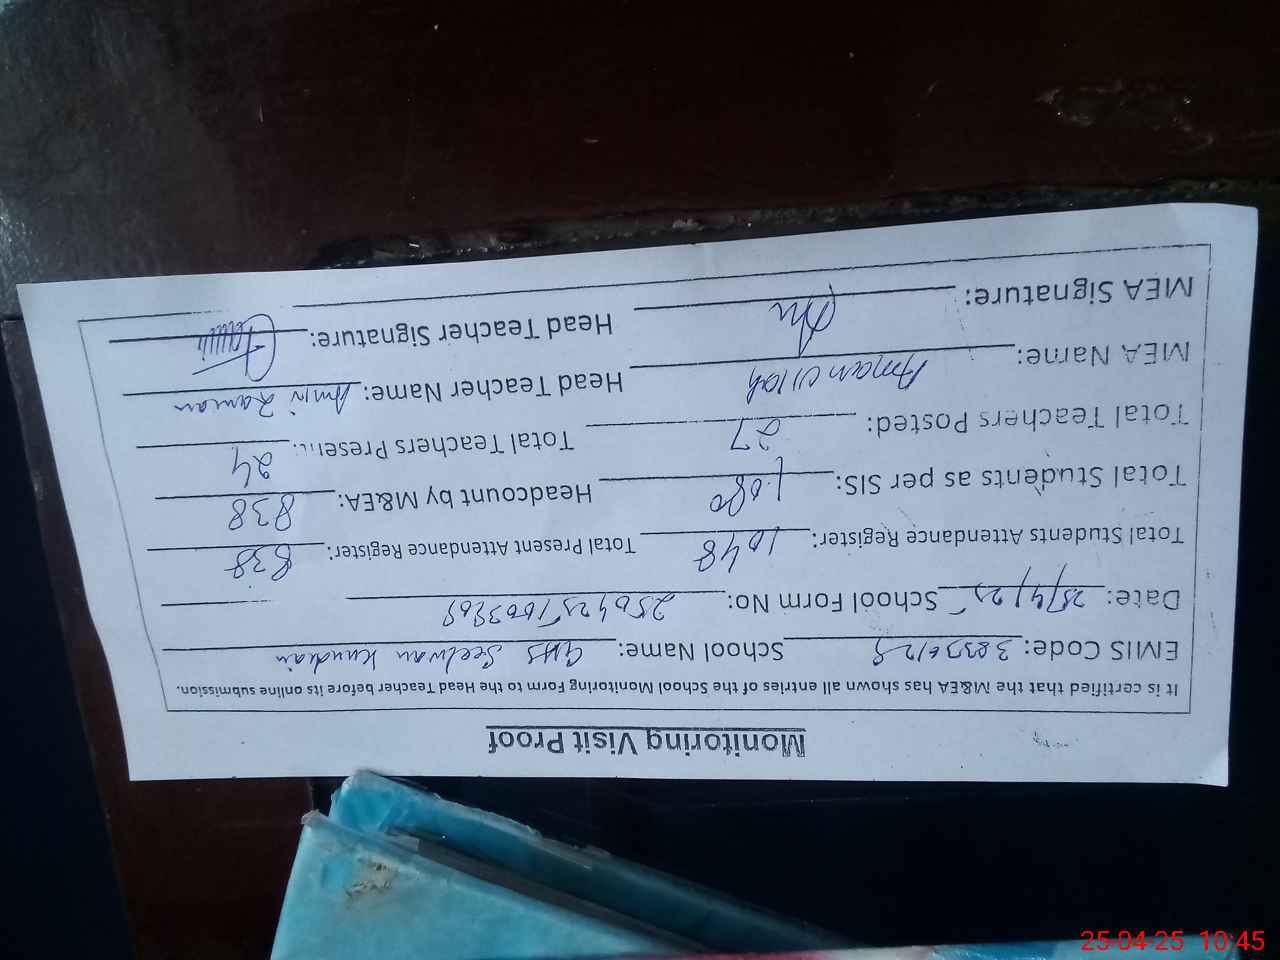 Monitoring Visit Proof
It is certified that the M&EA has shown all entries of the School Monitoring Form to the Head Teacher before its online submission.
EMIS Code: School Name: GHS Seelwan Kundian
Date: 25/4/25 School Form No:
Total Students Attendance Register: 1048 Total Present Attendance Register: 838
Total Students as per SIS: 1080 Headcount by M&EA: 838
Total Teachers Posted: 27 Total Teachers Present: 24
MEA Name: Aman ullah Head Teacher Name: Amir
MEA Signature: Head Teacher Signature:
25-04-25 10:45